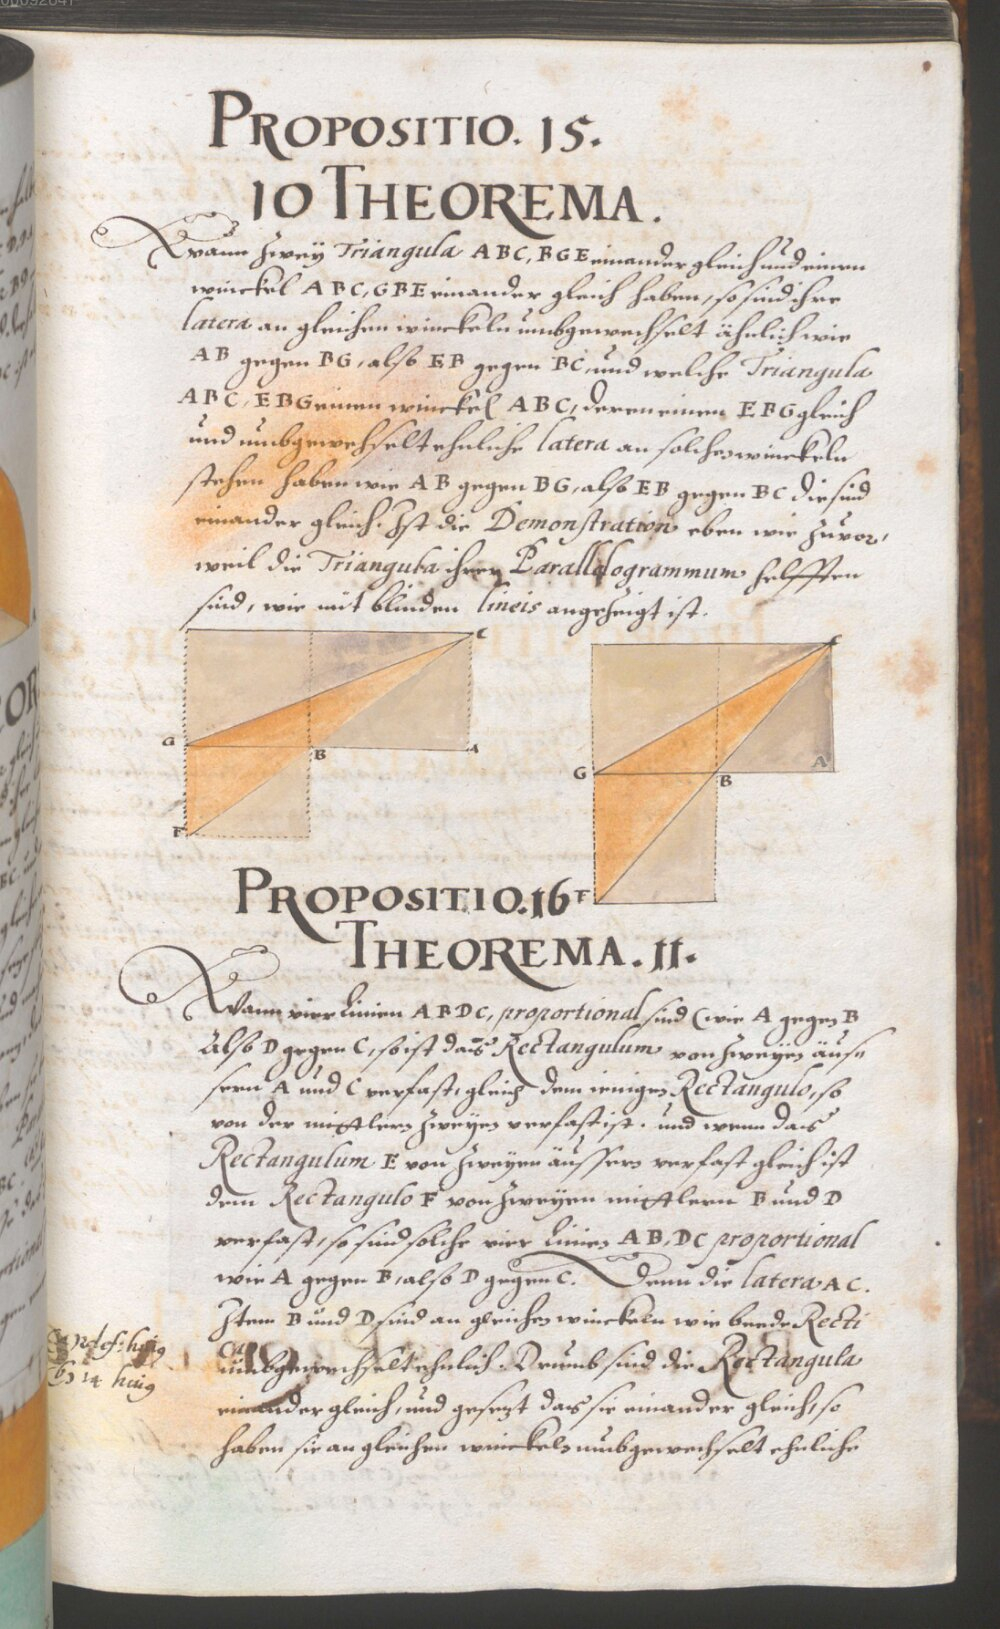 PROPOSITIO. 15.
10 THEOREMA.
Wann zwey Triangula ABC, BGE einander gleich und einen
winckel ABC, GBE einander gleich haben, so sind ihre
latera an gleichen winckeln umbgewechselt ähnlich wie
AB gegen BG, also EB gegen BC, und welche Triangula
ABC, EBG einen winckel ABC, deren einem EBG gleich
und umbgewechselt ehnliche latera an solchen winckeln
stehen haben wie AB gegen BG, also EB gegen BC die sind
einander gleich. Ist die Demonstration eben wie zuvor,
weil die Triangula ihrer Parallelogrammum helfften
sind, wie mit blinden lineis angezeigt ist.
C
G
B
A
F
C
G
B
A
F
PROPOSITIO. 16
THEOREMA. 11.
Wann vier Linien ABDC, proportional sind (wie A gegen B
Also D gegen C, so ist das Rectangulum von zweyen äuse
sern A und C verfast, gleich dem ienigen Rectangulo, so
von der mittlern zweyen verfast ist. und wenn das
Rectangulum E von zweyen äussern verfast gleich ist
dem Rectangulo F von zweyen mittlern B und D
verfast, so sind solche vier Linien AB, DC proportional
wie A gegen B, also D gegen C. Denn die latera AC.
Item B und D sind an gleichen winckeln wie beede Recti
umbgewechselt ehnlich. Drumb sind die Rectangula
einander gleich, und gesezt das sie einander gleich, so
haben sie an gleichen winckeln umbgewechselt ehnliche
def: huig
14 huig